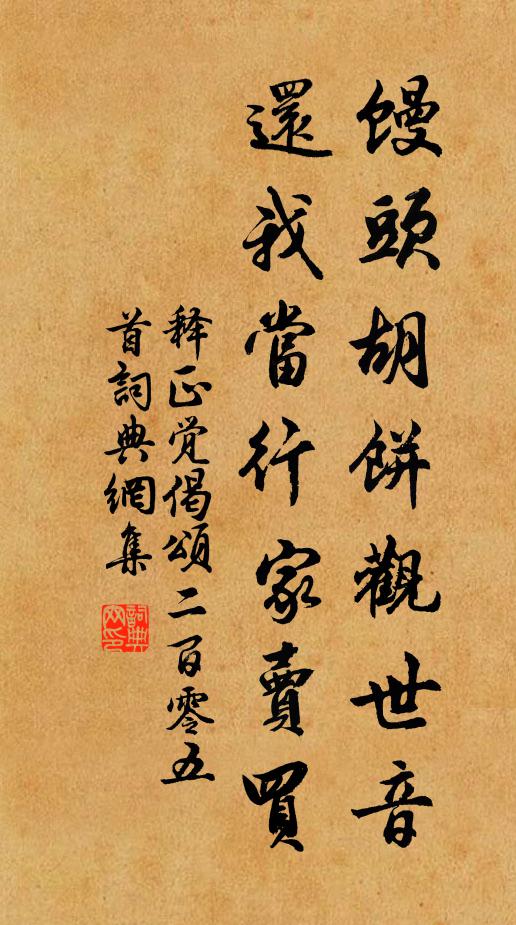 饅頭胡餅觀世音
還我當行家賣買
释正觉偈頌二百零五
首詞典網集
詞典网印